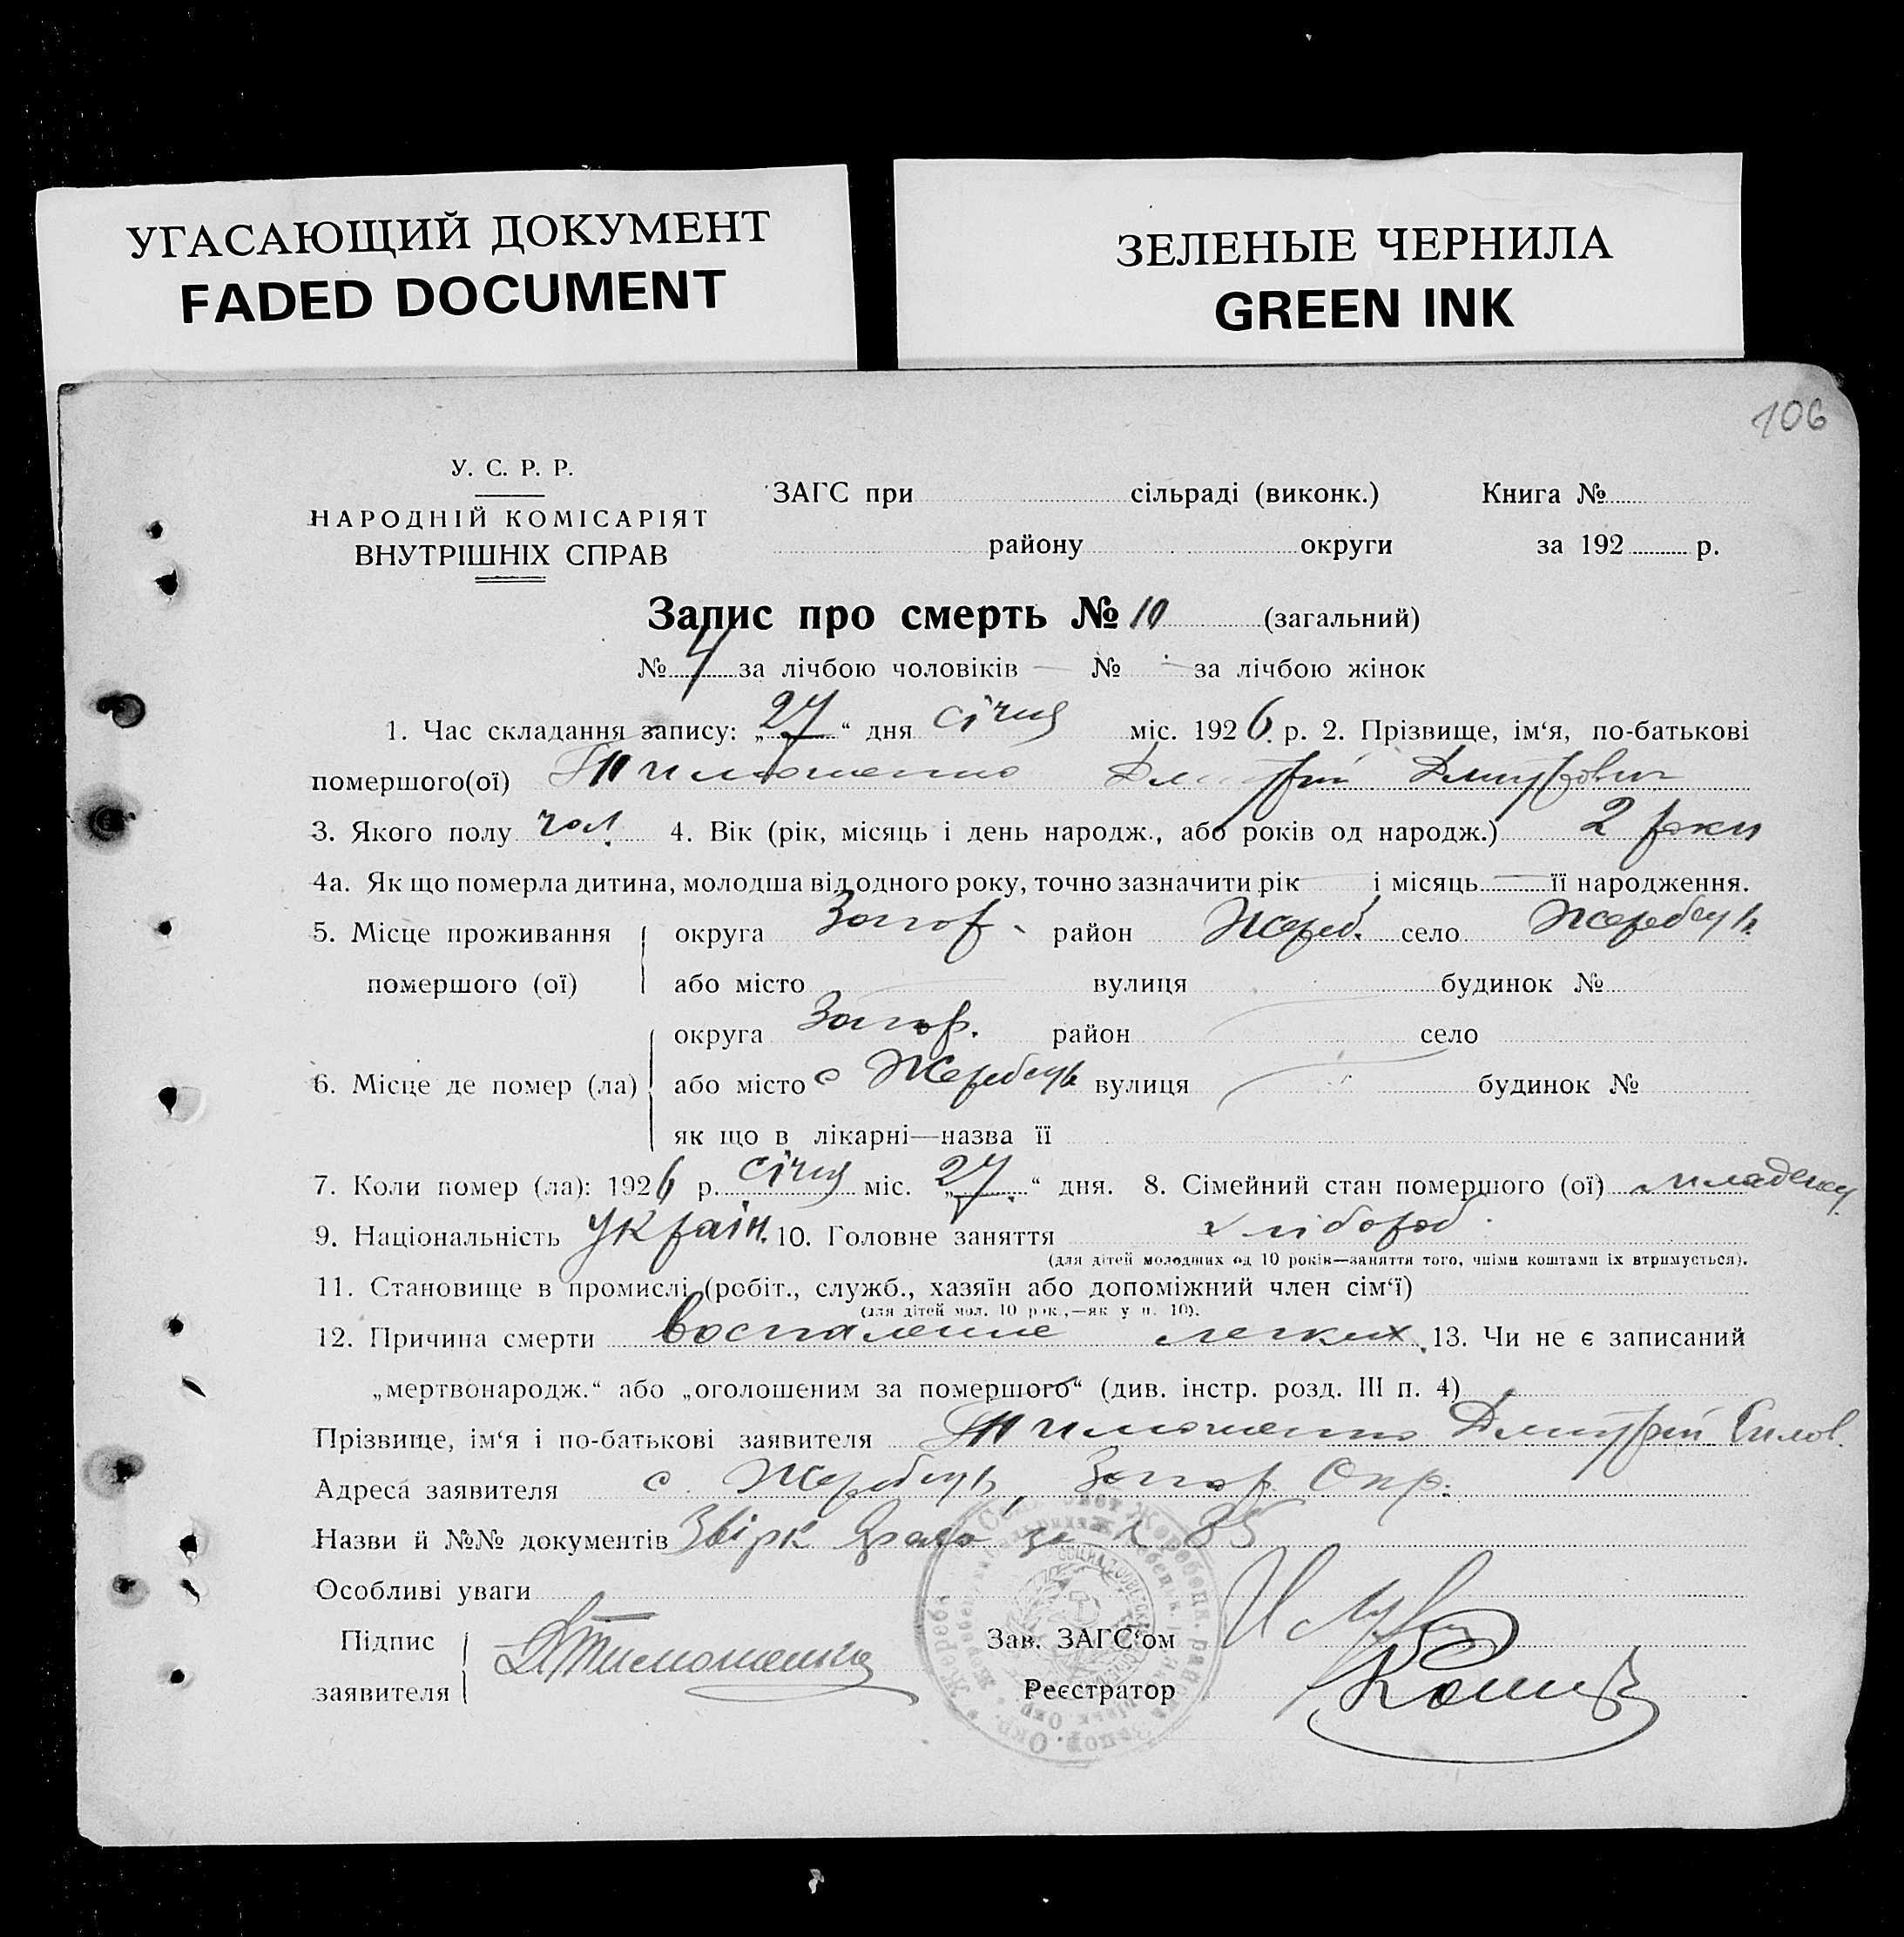 УГАСАЮЩИЙ ДОКУМЕНТ
FADED DOCUMENT
ЗЕЛЕНЫЕ ЧЕРНИЛА
GREEN INK
106
У. С. Р. Р.
НАРОДНІЙ КОМІСАРІЯТ
ВНУТРІШНІХ СПРАВ
ЗАГС при сільраді (виконк.) Книга №
району округи за 192 р.
Запис про смерть № 10 (загальний)
№ 4 за лічбою чоловіків — № — за лічбою жінок
1. Час складання запису: „27“ дня січня міс. 1926 р. 2. Прізвище, ім‘я, по-батькові
помершого(ої) Тимошенко Дмитрій Дмитрович
3. Якого полу чол. 4. Вік (рік, місяць і день народж., або років од народж.) 2 роки
4а. Як що померла дитина, молодша від одного року, точно зазначити рік і місяць — її народження.
5. Місце проживання округа Запор. район Жереб. село Жеребець
помершого (ої) або місто вулиця будинок №
округа Запор. район село
6. Місце де помер (ла) або місто с Жеребець вулиця будинок №
як що в лікарні—назва її
7. Коли помер (ла): 1926 р. січня міс. „27.“ дня. 8. Сімейний стан помершого (ої) младенец
9. Національність Україн. 10. Головне заняття хлібороб
(для дітей молодших од 10 років—заняття того, чиїми коштами їх втримується).
11. Становище в промислі (робіт., служб., хазяїн або допоміжний член сім‘ї)
(для дітей мол. 10 рок.,—як у п. 10).
12. Причина смерти воспаление легких. 13. Чи не є записаний
„мертвонародж.“ або „оголошеним за помершого“ (див. інстр. розд. III п. 4)
Прізвище, ім‘я і по-батькові заявителя Тимошенко Дмитрій Силов.
Адреса заявителя с. Жеребець, Запор. Окр.
Назви й №№ документів за № 85
Особливі уваги
Підпис
заявителя
ДТимошенко
Зав. ЗАГС‘ом
Реєстратор